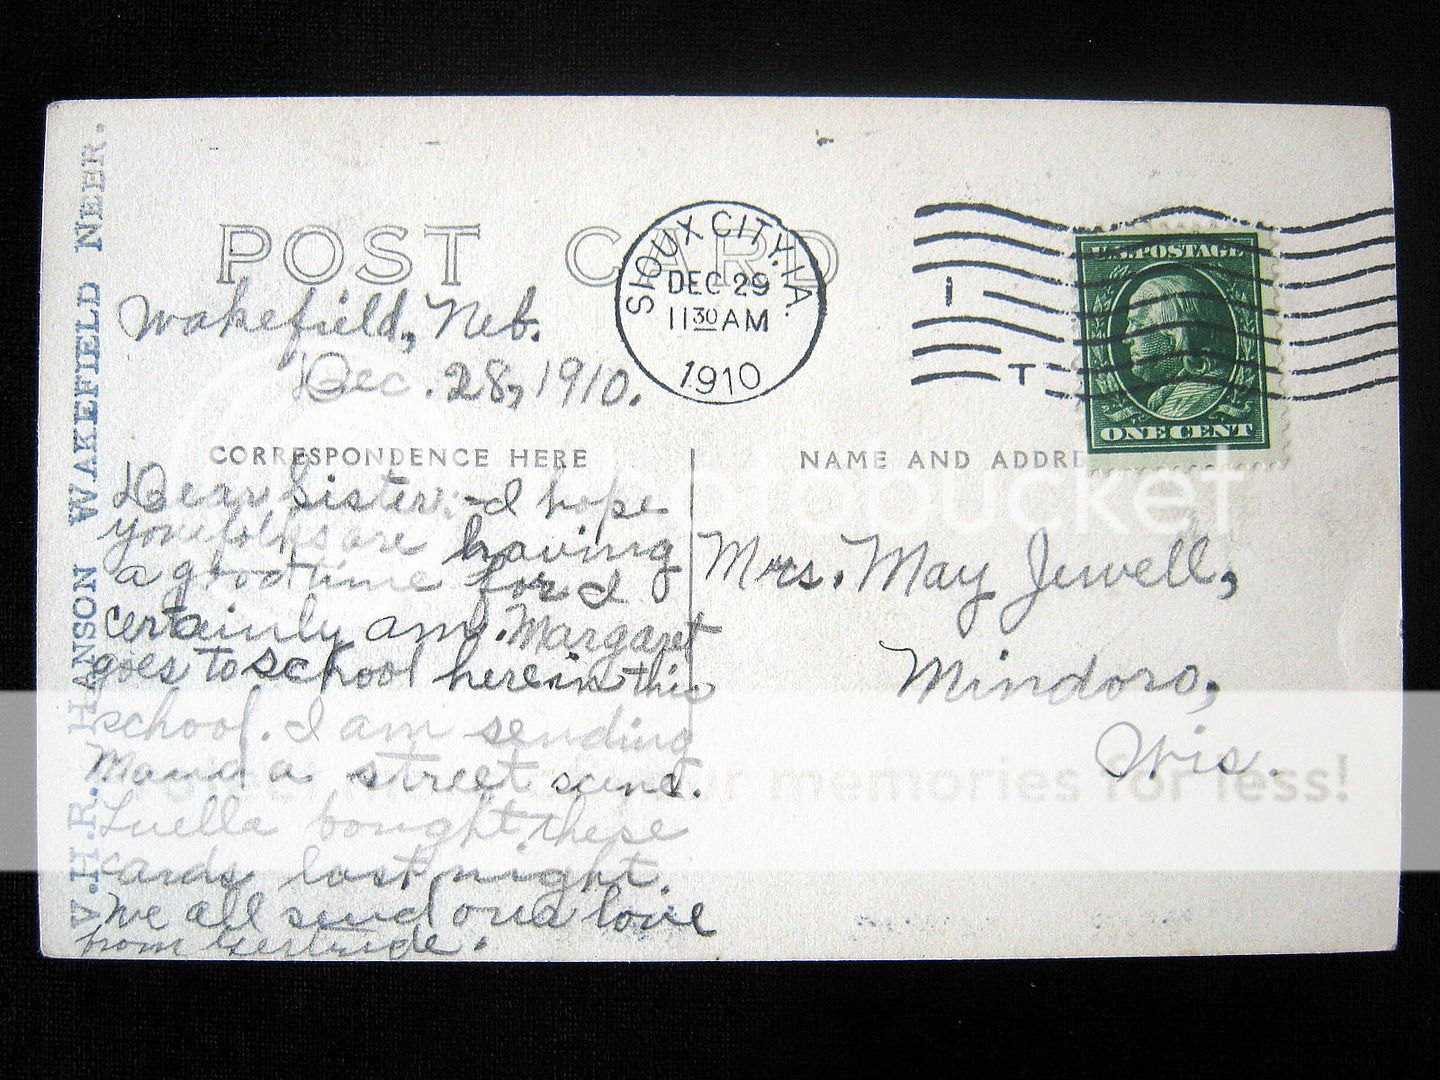 V.H.R. HANSON WAKEFIELD NEBR.
POST CARD
Wakefield, Neb.
Dec. 28, 1910.
SIOUX CITY, IA.
DEC 29
11 30 AM
1910
1
T
U.S. POSTAGE
ONE CENT
CORRESPONDENCE HERE
Dear Sister:- I hope
you folks are having
a good time for I
certainly am. Margaret
goes to school here in this
school. I am sending
Maud a street scene.
Luella bought these
cards last night.
We all send our love
from Gertrude.
NAME AND ADDRE
Mrs. May Jewell,
Mindoro,
Wis.
photobucket
your memories for less!